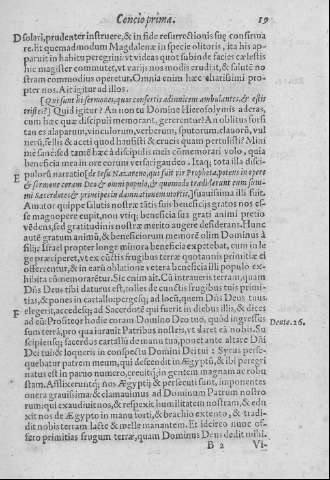 Concio prima. 19
D solari, prudenter instruere, & in fide resurrectionis suę confirma
re. Et quemadmodum Magdalenæ in specie olitoris, ita his ap-
paruit in habitu peregrini: vt videas quot subinde facies cælestis
hic magister commutet, vt varijs nos modis erudiat, & salutē no
stram commodius operetur. Omnia enim hæc charissimi prop-
ter nos. Ait igitur ad illos.
[Qui sunt hi sermones, quos confertis adinuicem ambulantes, & estis
tristes?] Quid igitur? An non tu Domine Hierosolymis aderas,
cum hæc quæ discipuli memorant, gererentur? An oblitus forsi
tan es alaparum, vinculorum, verberum, sputorum, clauorū, vul
nerū, fellis & aceti quod hausisti & crucis quam pertulisti? Mini
mè sanè: sed tamē hæc à discipulis meis cōmemorari volo, quia
beneficia mea in ore eorum versari gaudeo. Itaq; tota illa disci-
E pulorū narratio [de Iesu Nazareno, qui fuit vir Propheta, potens in opere
& sermone coram Deo & omni populo, & quomodo tradiderunt eum sum-
mi Sacerdotes & principes in damnationem mortis,] suauissima illi fuit.
Amator quippe salutis nostræ tātis suis beneficijs gratos nos es-
se magnopere cupit, non vtiq; beneficia sua grati animi pretio
vēdens, sed gratitudinis nostræ merito augere desiderans. Hunc
autē gratum animū, & beneficiorum memorē olim Dominus à
filijs Israel propter longe minora beneficia expetebat, cum in le
ge præciperet, vt ex cūctis frugibus terræ quotannis primitiæ ei
offerrentur, & in earū oblatione vetera beneficia illi populo ex-
hibita cōmemorarētur. Sic enim ait. Cū intraueris terram, quam
Dñs Deus tibi daturus est, tolles de cunctis frugibus tuis primi-
tias, & pones in cartallo: pergesq; ad locū, quem Dñs Deus tuus
F elegerit, accedesq; ad Sacerdotē qui fuerit in diebus illis, & dices
ad eū: Profiteor hodie coram Domino Deo tuo, quòd ingressus Deute. 26.
sum terrā, pro qua iurauit Patribus nostris, vt daret eā nobis. Su
scipiensq; sacerdos cartallū de manu tua, ponet ante altare Dñi
Dei tui: & loqueris in conspectu Domini Dei tui: Syrus perse-
quebatur patrem meum, qui descendit in Ægyptū, & ibi peregri
natus est in paruo numero, creuitq; in gentem magnam ac robu
stam. Afflixeruntq; nos Ægyptij & persecuti sunt, imponentes
onera grauissima: & clamauimus ad Dominum Patrum nostro
rum: qui exaudiuit nos, & respexit humilitatem nostram, & edu
xit nos de Ægypto in manu forti, & brachio extento, & tradi-
dit nobis terram lacte & melle manantem. Et idcirco nunc of-
fero primitias frugum terræ, quam Dominus Deus dedit mihi.
B 2 Vi-